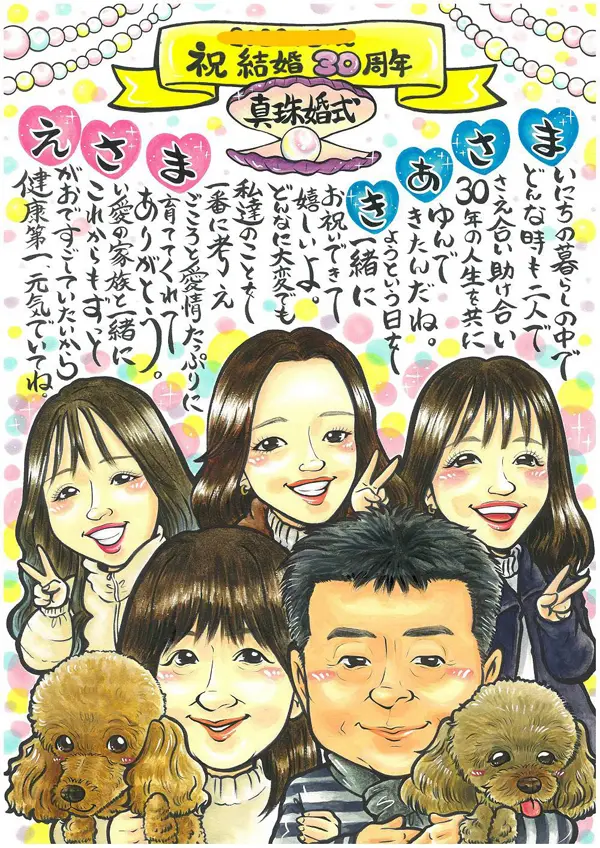 祝 結婚30周年
真珠婚式
まいにちの暮らしの中で
どんな時も二人で
ささえ合い助け合い
30年の人生を共に
あゆんで
きたんだね。
きようという日を
一緒に
お祝いできて
嬉しいよ。
どんなに大変でも
私達のことを
一番に考え
まごころと愛情たっぷりに
育ててくれて
ありがとう。
さい愛の家族と一緒に
これからもずっと
えがおですごしていたいから
健康第一、元気でいてね。